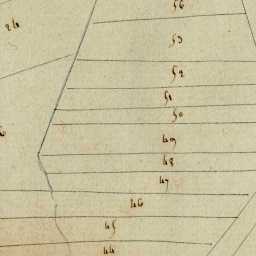 56
26
53
52
51
50
49
48
47
46
45
44